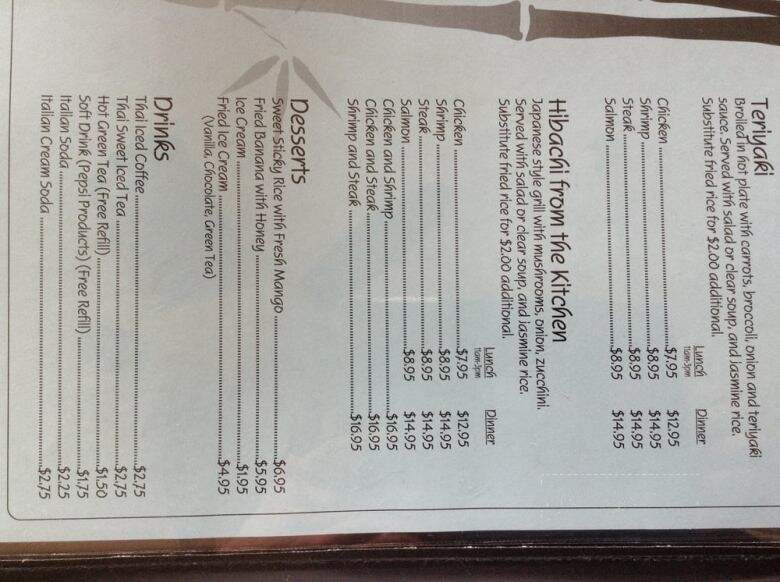 Teriyaki
Broiled in hot plate with carrots, broccoli, onion and teriyaki
sauce. Served with salad or clear soup, and jasmine rice.
Substitute fried rice for $2.00 additional.
Lunch Dinner
11am-3pm
Chicken $7.95 $12.95
Shrimp $8.95 $14.95
Steak $8.95 $14.95
Salmon $8.95 $14.95
Hibachi from the Kitchen
Japanese style grill with mushrooms, onion, zucchini.
Served with salad or clear soup, and jasmine rice.
Substitute fried rice for $2.00 additional.
Lunch Dinner
11am-3pm
Chicken $7.95 $12.95
Shrimp $8.95 $14.95
Steak $8.95 $14.95
Salmon $8.95 $14.95
Chicken and Shrimp $16.95
Chicken and Steak $16.95
Shrimp and Steak $16.95
Desserts
Sweet Sticky Rice with Fresh Mango $6.95
Fried Banana with Honey $5.95
Ice Cream $1.95
Fried Ice Cream $4.95
(Vanilla, Chocolate, Green Tea)
Drinks
Thai Iced Coffee $2.75
Thai Sweet Iced Tea $2.75
Hot Green Tea (Free Refill) $1.50
Soft Drink (Pepsi Products) (Free Refill) $1.75
Italian Soda $2.25
Italian Cream Soda $2.75